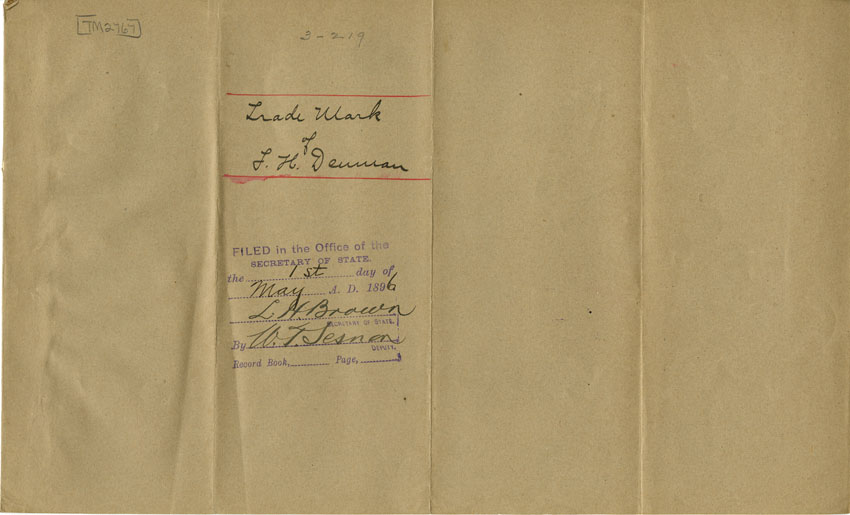 TM2767
3-219
Trade Mark
of
F. H. Denman
FILED in the Office of the
SECRETARY OF STATE.
the 1st day of
May A. D. 1896
L H Brown
SECRETARY OF STATE.
By W. T.
DEPUTY.
Record Book, Page,